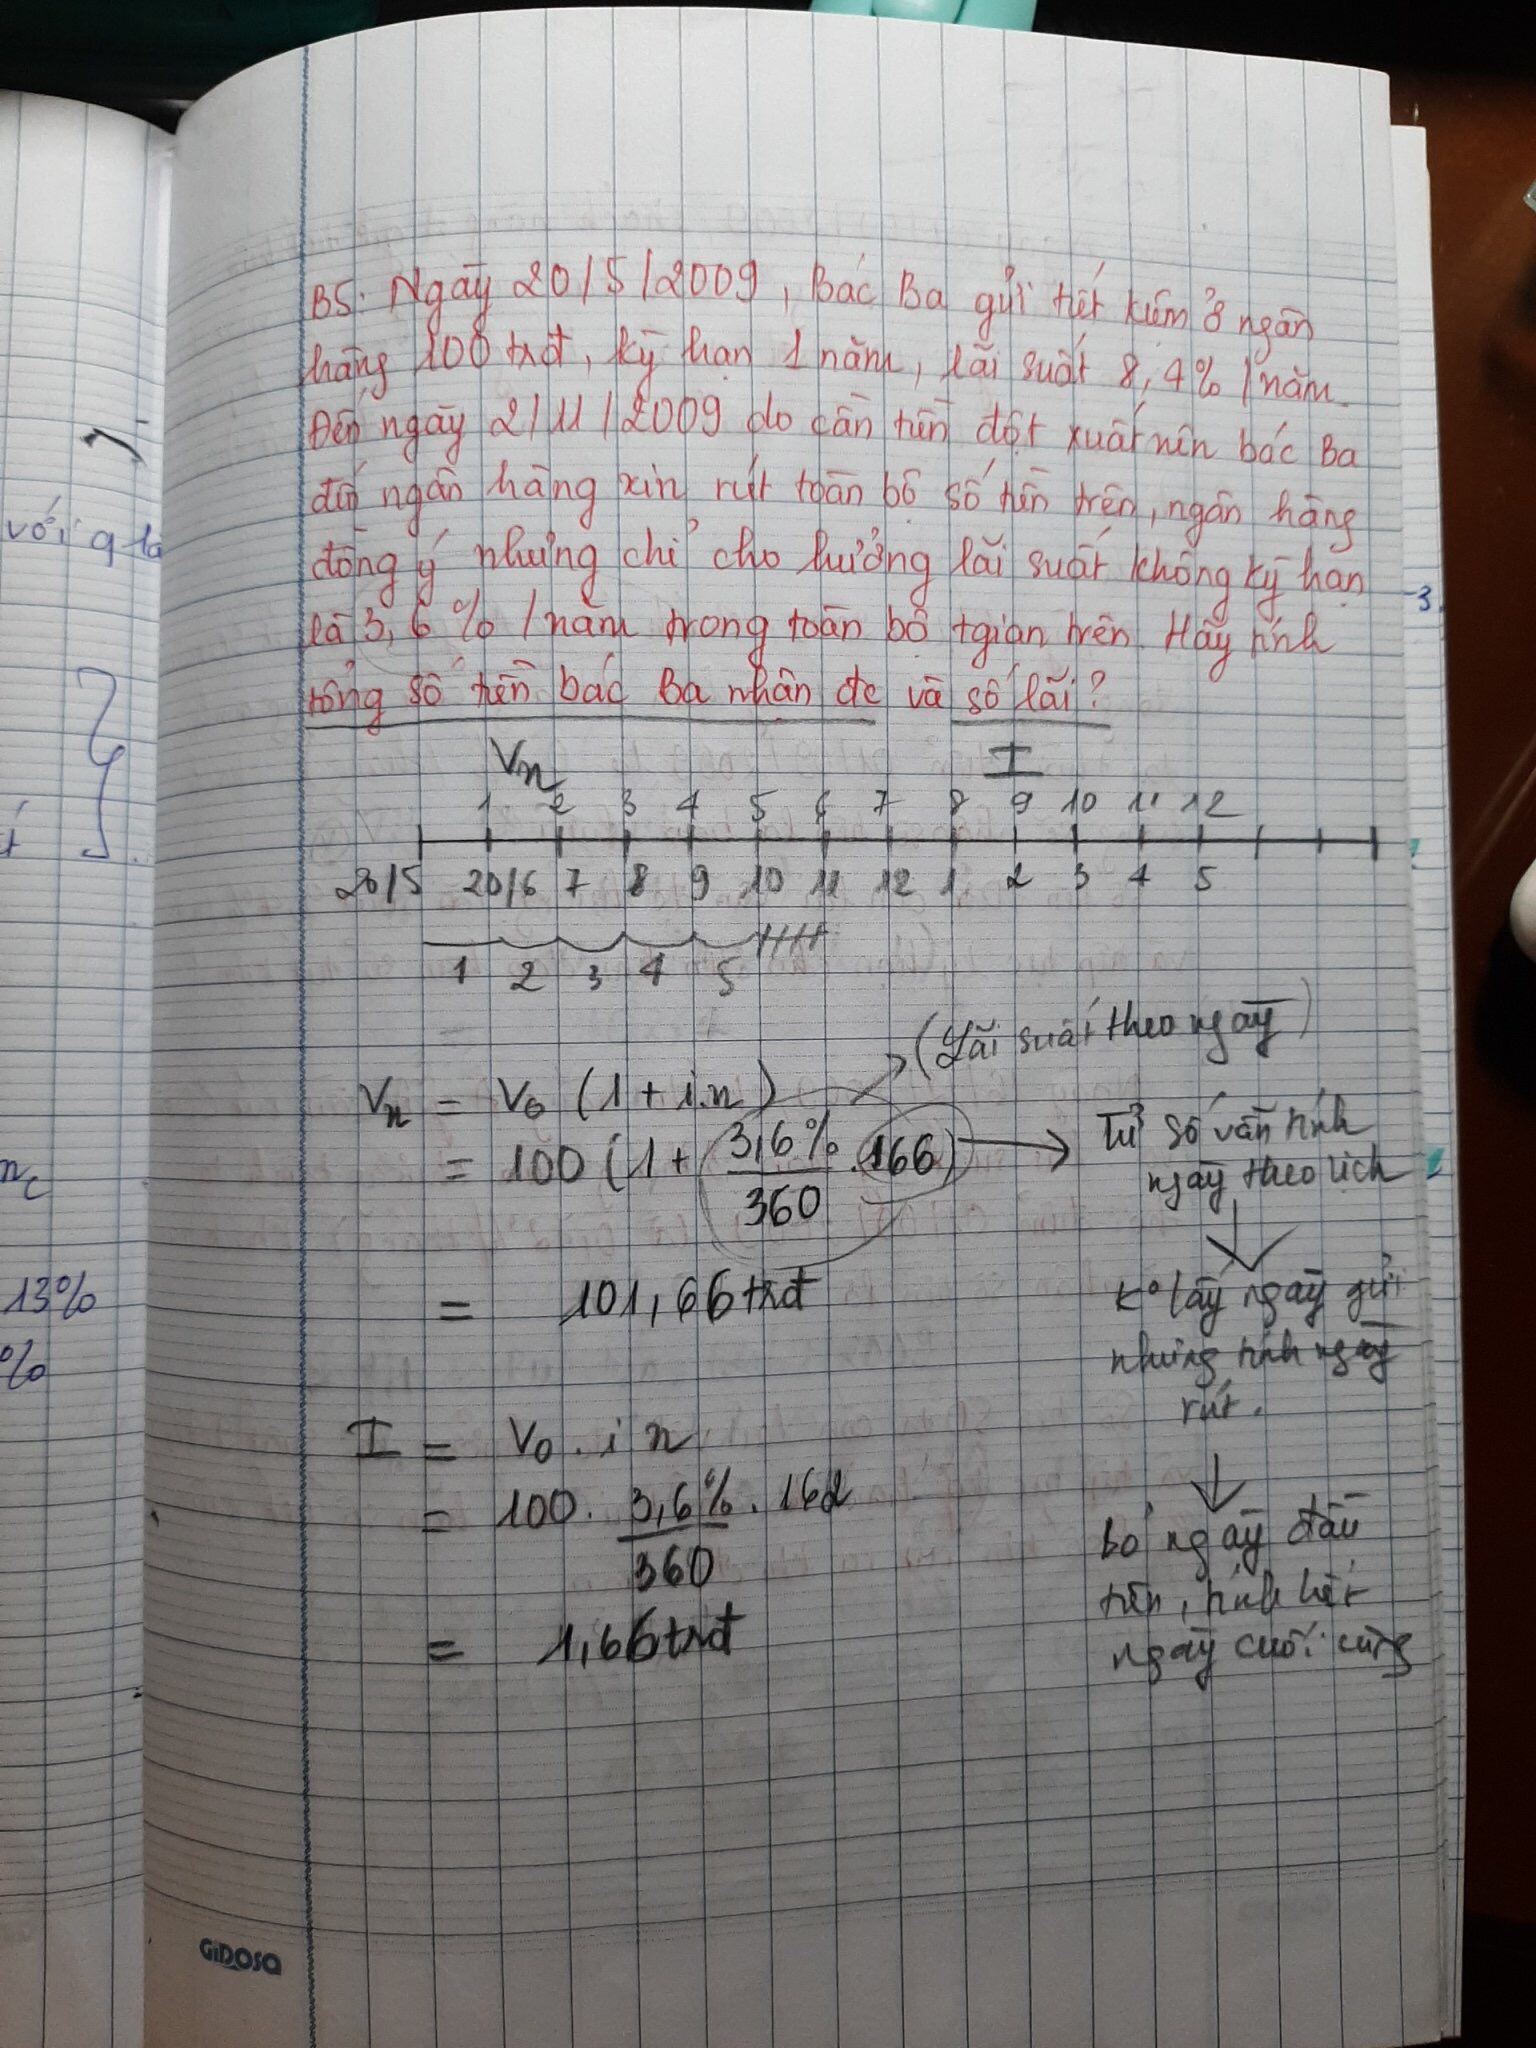 B5. Ngày 20/5/2009, Bác Ba gửi tiết kiệm ở ngân
hàng 100 trđ, kỳ hạn 1 năm, lãi suất 8,4% /năm.
Đến ngày 2/11/2009 do cần tiền đột xuất nên bác Ba
đến ngân hàng xin rút toàn bộ số tiền trên, ngân hàng
đồng ý nhưng chỉ cho hưởng lãi suất không kỳ hạn
là 3,6% /năm trong toàn bộ tgian trên. Hãy tính
tổng số tiền bác Ba nhận đc và số lãi?
Vn I
1 2 3 4 5 6 7 8 9 10 11 12
20/5 20/6 7 8 9 10 11 12 1 2 3 4 5
1 2 3 4 5
(Lãi suất theo ngày)
Vn = V0 (1 + i.n)
= 100 (1 + 3,6% . 166)
360
Tử số vẫn tính
ngày theo lịch
= 101,66 trđ
K° lấy ngày gửi
nhưng tính ngày
rút.
I = V0 . i n
= 100 . 3,6% . 162
360
= 1,66 trđ
bỏ ngày đầu
tiên, tính hết
ngày cuối cùng
với g la
3
13%
%
GIDOSA